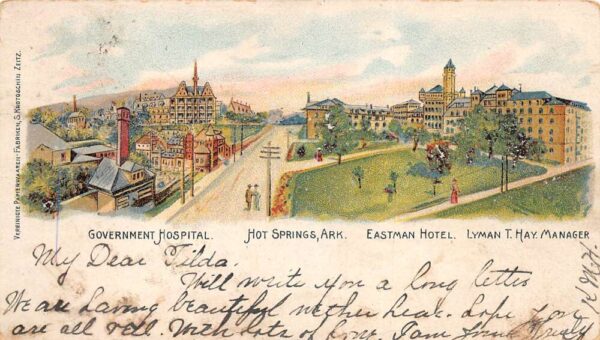 VEREINIGTE PAPIERWAAREN-FABRIKEN, S. KROTOSCHIN ZEITZ.
GOVERNMENT HOSPITAL. HOT SPRINGS, ARK. EASTMAN HOTEL. LYMAN T. HAY. MANAGER
My Dear Tilda.
Will write you a long letter
We are having beautiful wether hear. Hope you
are all well. With lots of love. I am Your Truly